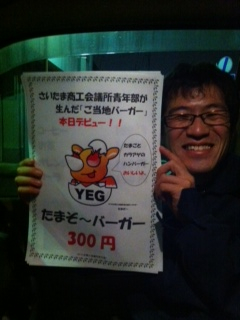 さいたま商工会議所青年部が
生んだ「ご当地バーガー」
本日デビュー！！
たまごと
ハンバーガー
YEG
たまぞ～バーガー
300円